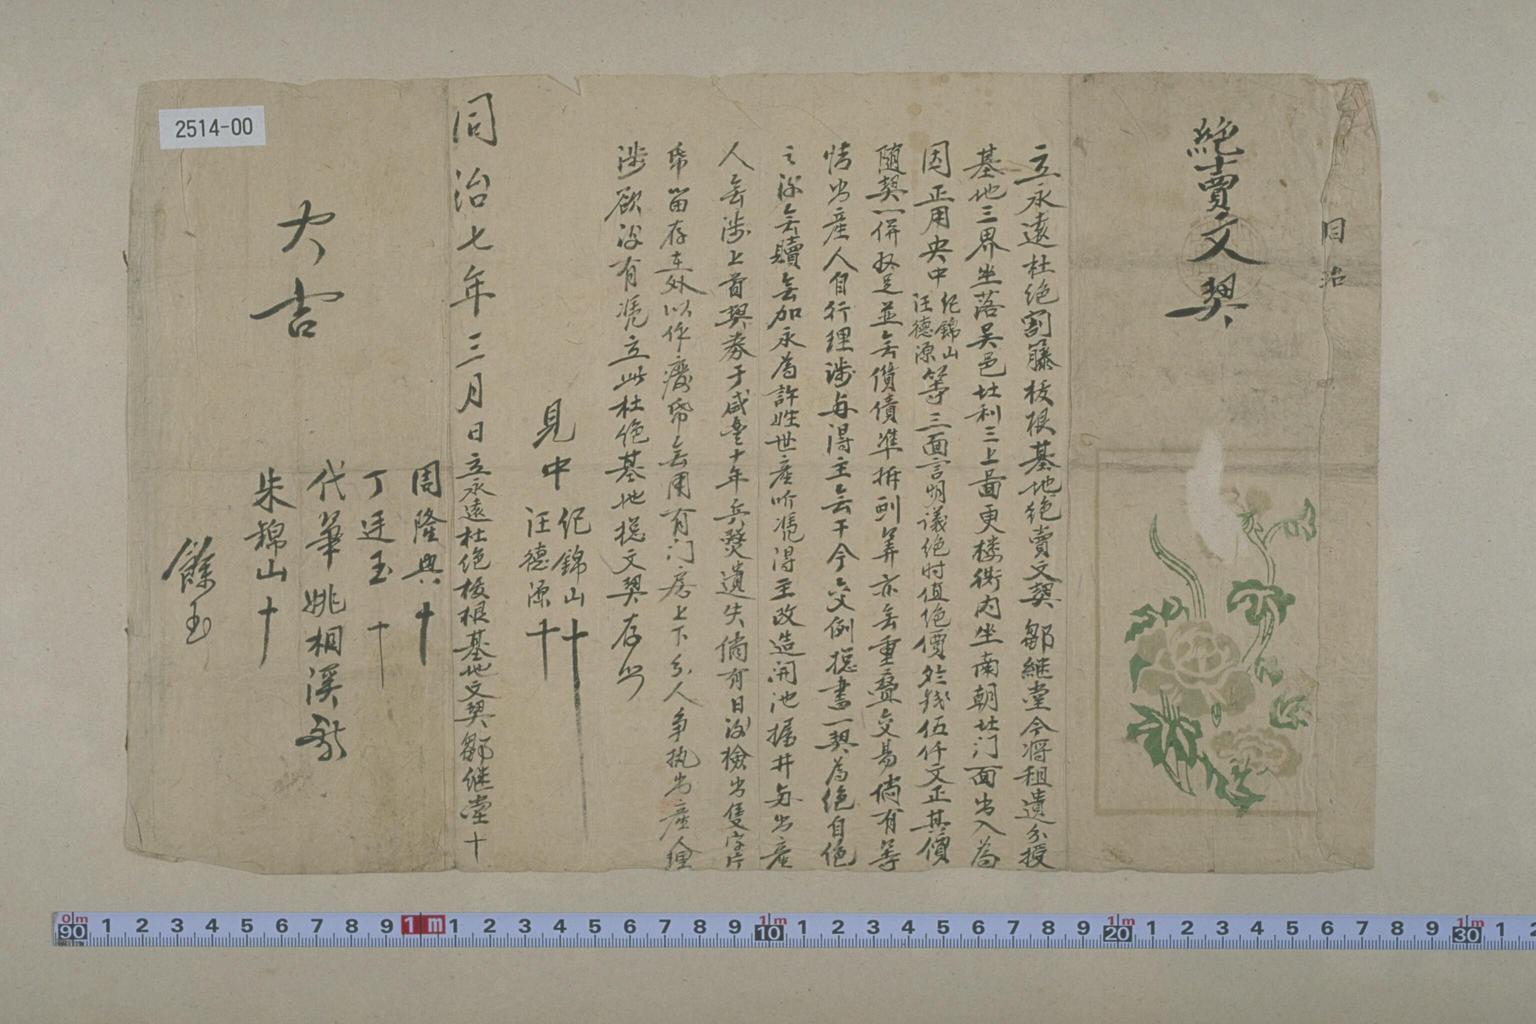 同治
絕賣文契
立永遠杜绝割藤拔根基地绝賣文契鄒継堂今将祖遺分授
基地三界坐落吴邑北利三上啚更楼衖内坐南朝北门面出入为
因正用央中纪錦山汪德源等三面言明議绝时值绝價錢伍仟文正其價
随契一併収足並無債凖折利筭亦無重疊交易倘有等
情出産人自行理涉与得主無干今交例总書一契為绝自绝
之後無贖無加永為許姓世産听凭得主改造開池掘井与出産
人無涉上首契券于咸豊十年兵燹遺失倘有日後檢出隻字片
帋留存在外以作廢帋無用有门房上下分人争执出産人理
涉欲後有凭立此杜绝基地总文契存照
見中 纪錦山十 汪德源十
同治七年三月日立永遠杜绝拔根基地文契鄒継堂十
周隆興十
丁廷玉十
代筆姚相溪
朱錦山十
餘玉
大吉
2514-00
0m 90 1 2 3 4 5 6 7 8 9 1m 1 2 3 4 5 6 7 8 9 1m 10 1 2 3 4 5 6 7 8 9 1m 20 1 2 3 4 5 6 7 8 9 1m 30 1 2